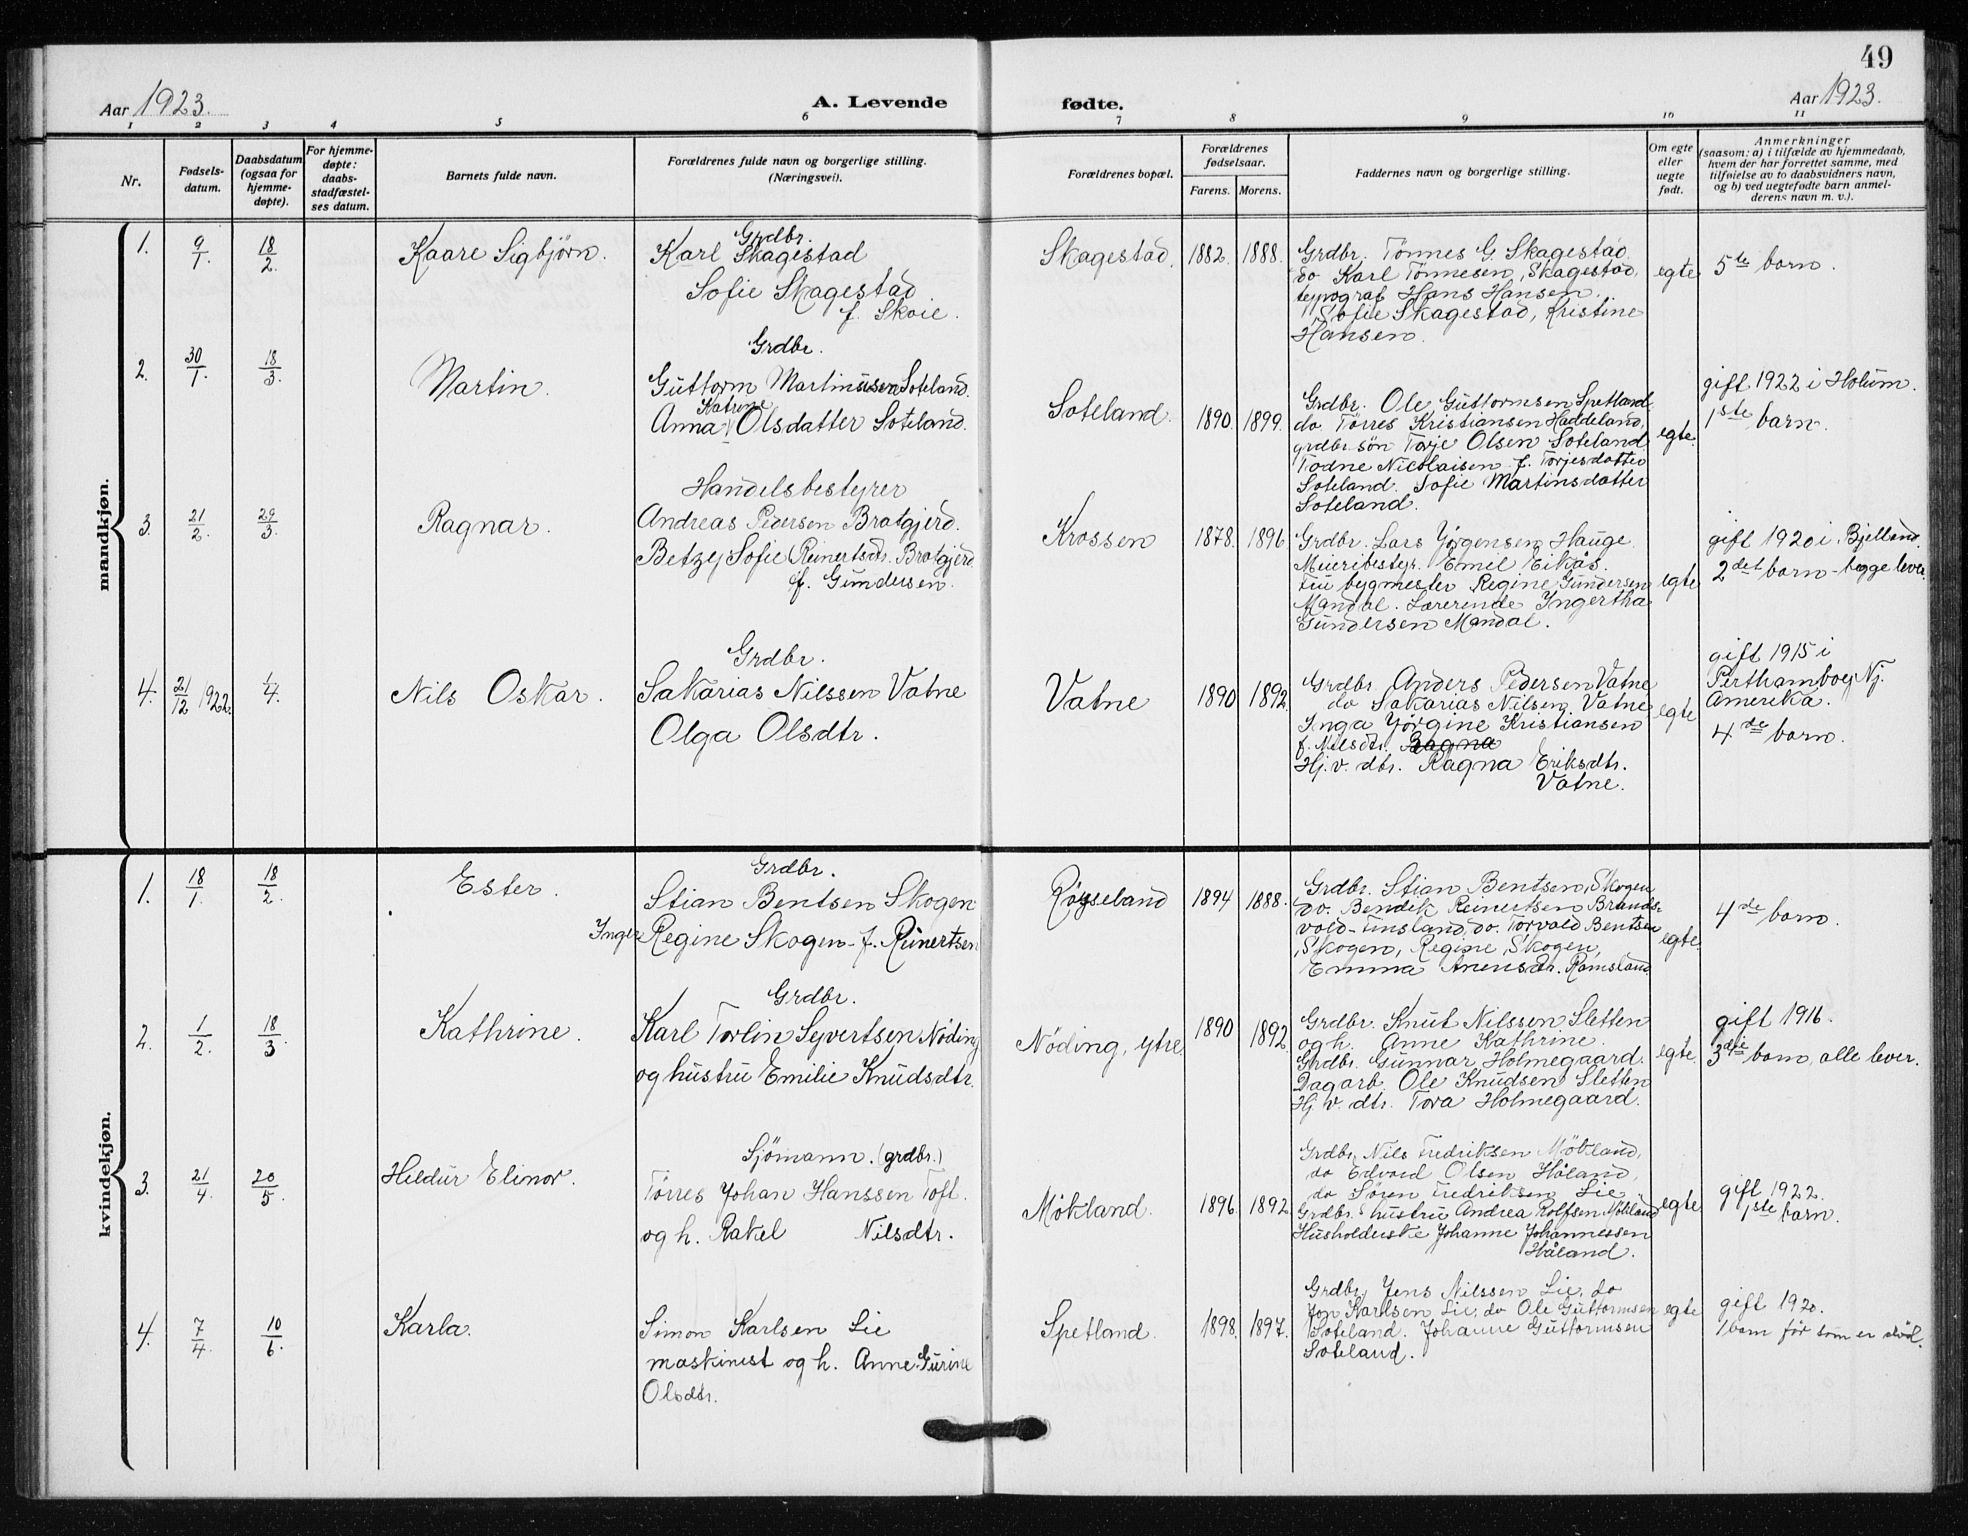 49
Aar 1923.
A. Levende fødte.
Aar 1923.
1 2 3 4 5 6 7 8 9 10 11
Nr.
Fødsels-
datum.
Daabsdatum
(ogsaa for
hjemme-
døpte).
For hjemme-
døpte:
daabs-
stadfæstel-
ses datum.
Barnets fulde navn.
Forældrenes fulde navn og borgerlige stilling.
(Næringsvei).
Forældrenes bopæl.
Forældrenes
fødselsaar.
Farens. Morens.
Faddernes navn og borgerlige stilling.
Om egte
eller
uegte
født.
Anmerkninger
(saasom: a) i tilfælde av hjemmedaab,
hvem der har forrettet samme, med
tilføielse av to daabsvidners navn,
og b) ved uegtefødte barn anmel-
derens navn m. v.).
mandkjøn.
1. 9/1. 18/2. Kaare Sigbjörn.
Grdbr.
Karl Skagestad
Sofie Skagestad
f. Skoie.
Skagestad. 1882. 1888.
Grdbr. Tönnes G. Skagestad
do Karl Tönnesen, Skagestad,
typograf Hans Hansen.
Sofie Skagestad, Kristine
Hansen.
egte
5te barn.
2. 30/1. 18/3. Martin.
Grdbr.
Guttorm Martinusen Soteland.
Katrine
Anna Olsdatter Soteland.
Soteland. 1890. 1899.
Grdbr. Ole Guttormsen Spetland
do Törres Kristiansen Haddeland,
grdbr.sön Torje Olsen Soteland
Todne Nicolaisen f. Torjesdatter
Soteland. Sofie Martinsdatter
Soteland.
egte.
gift 1922 i Holum.
1ste barn.
3. 21/2. 29/3. Ragnar.
Handelsbestyrer
Andreas Pedersen Bratgjerd.
Betzy Sofie Reinertsdr. Bratgjerd
f. Gundersen.
Krossen 1878. 1896
Grdbr. Lars Jörgensen Hauge.
Meieribestyr. Emil Eikås.
Fru bygmester Regine Gundersen
Mandal. Lærerinde Ingertha
Gundersen Mandal.
egte
gift 1920 i Bjelland.
2det barn - begge lever.
4. 21/12 1922. 1/4. Nils Oskar.
Grdbr.
Sakarias Nilssen Vatne
Olga Olsdtr.
Vatne 1890 1892.
Grdbr. Anders Pedersen Vatne
do Sakarias Nilsen Vatne
Inga Jörgine Kristiansen
f. Nilsdtr. Ragna
Hj. v. dtr. Ragna Eriksdtr.
Vatne.
egte
gift 1915 i
Perthamboy Nj.
Amerika.
4de barn.
kvindekjøn.
1. 18/1. 18/2. Ester.
Grdbr.
Stian Bentsen Skogen
Inger Regine Skogen - f. Reinertsen
Röyseland 1894 1888.
Grdbr. Stian Bentsen, Skogen
do. Bendik Reinertsen Brands-
vold - Finsland, do. Torvald Bentsen
Skogen, Regine Skogen,
Emma Arensdr. Ramsland
egte.
4de barn.
2. 1/2. 18/3. Kathrine.
Grdbr.
Karl Torlin Syvertsen Nöding
og hustru Emilie Knudsdtr.
Nöding, ytre. 1890 1892.
Grdbr. Knut Nilssen Sletten
og h. Anne Kathrine.
Grdbr. Gunnar Holmegaard.
Dagarb. Ole Knudsen Sletten
Hj. v. dtr. Tora Holmegaard.
egte.
gift 1916.
3die barn, alle lever.
3. 21/4. 20/5. Hildur Elinor.
Sjömann. (grdbr.)
Törres Johan Hanssen Toft.
og h. Rakel Nilsdtr.
Mökland. 1896. 1892.
Grdbr. Nils Fredriksen Mökland,
do Edvard Olsen Håland,
do Sören Fredriksen Lie
Grdbr. hustru Andrea Rolfsen Mökland
Husholderske Johanne Johannessen
Håland.
egte
gift 1922.
1ste barn.
4. 7/4. 10/6. Karla.
Simon Karlsen Lie
maskinist og h. Anne Gurine
Olsdtr.
Spetland. 1898. 1897.
Grdbr. Jens Nilssen Lie, do
Jon Karlsen Lie, do Ole Guttormsen
Soteland. Johanne Guttormsen
Soteland.
egte
gift 1920.
1 barn för som er död.